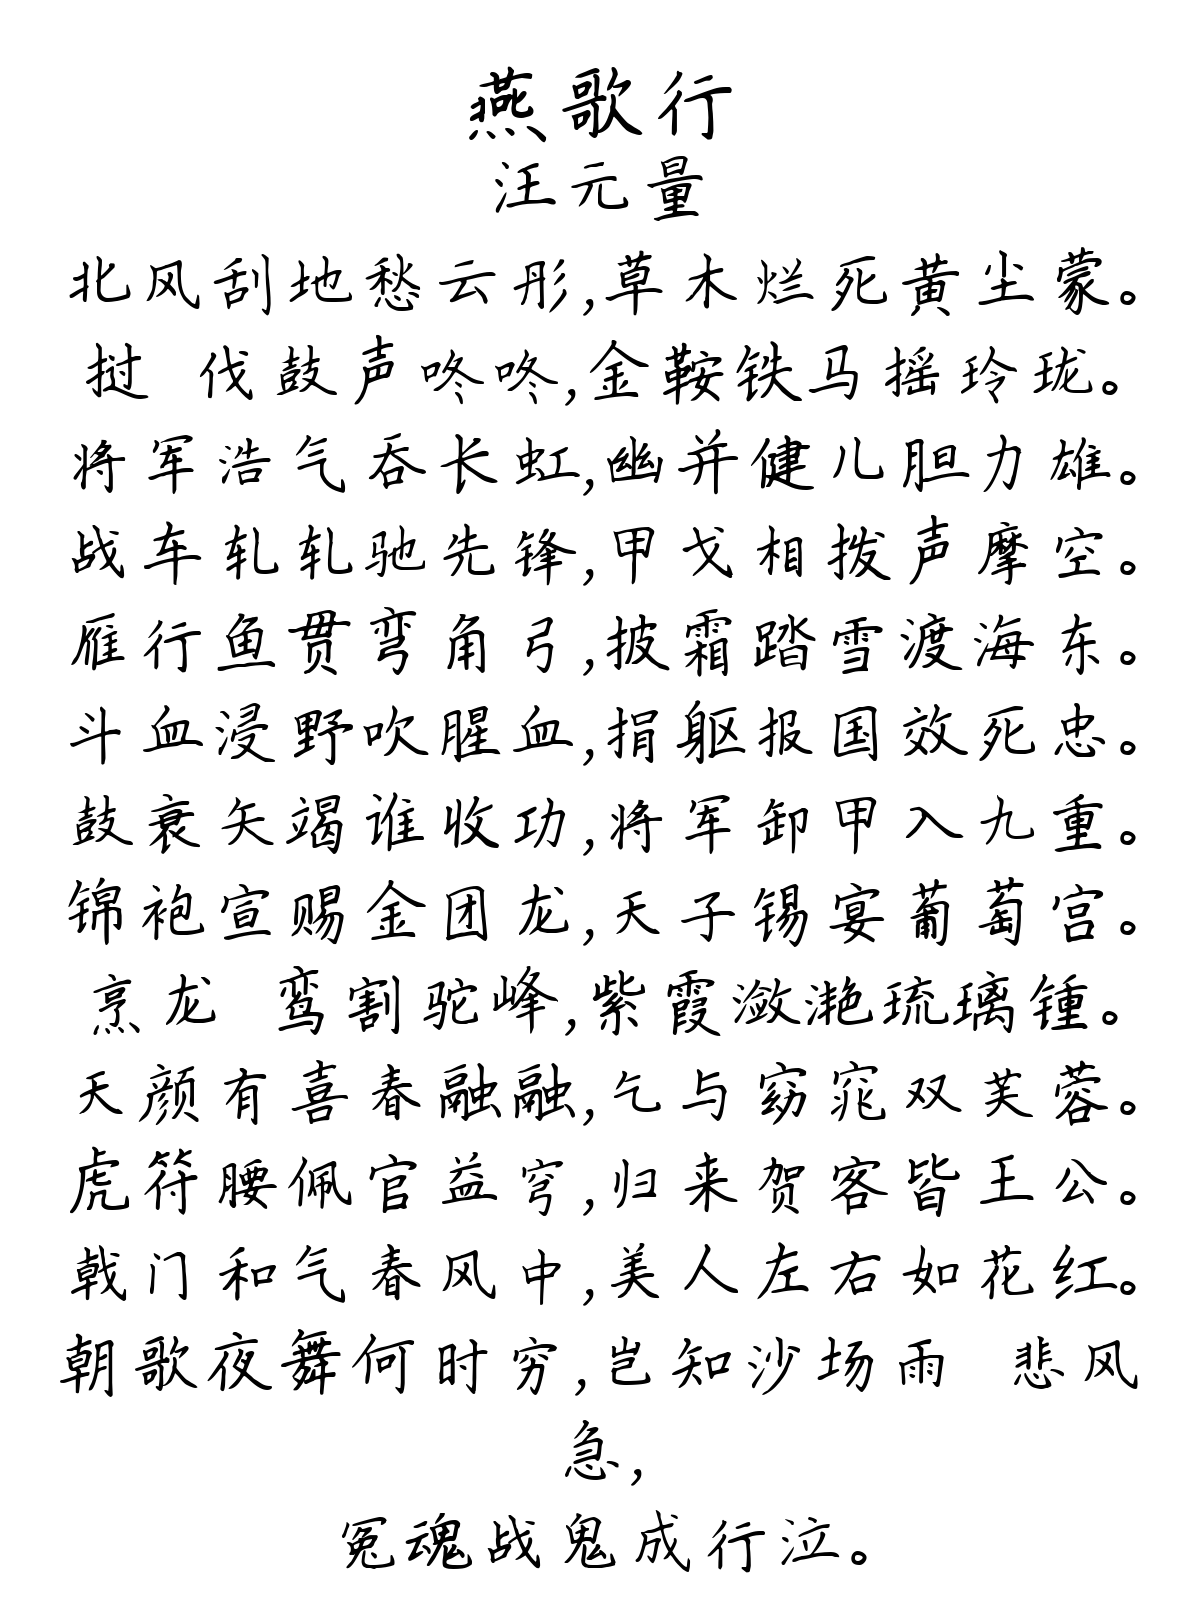 燕歌行
汪元量
北风刮地愁云彤,草木烂死黄尘蒙。
挝 伐鼓声咚咚,金鞍铁马摇玲珑。
将军浩气吞长虹,幽并健儿胆力雄。
战车轧轧驰先锋,甲戈相拨声摩空。
雁行鱼贯弯角弓,披霜踏雪渡海东。
斗血浸野吹腥血,捐躯报国效死忠。
鼓衰矢竭谁收功,将军卸甲入九重。
锦袍宣赐金团龙,天子锡宴葡萄宫。
烹龙 鸾割驼峰,紫霞潋滟琉璃锺。
天颜有喜春融融,乞与窈窕双芙蓉。
虎符腰佩官益穹,归来贺客皆王公。
戟门和气春风中,美人左右如花红。
朝歌夜舞何时穷,岂知沙场雨 悲风
急,
冤魂战鬼成行泣。